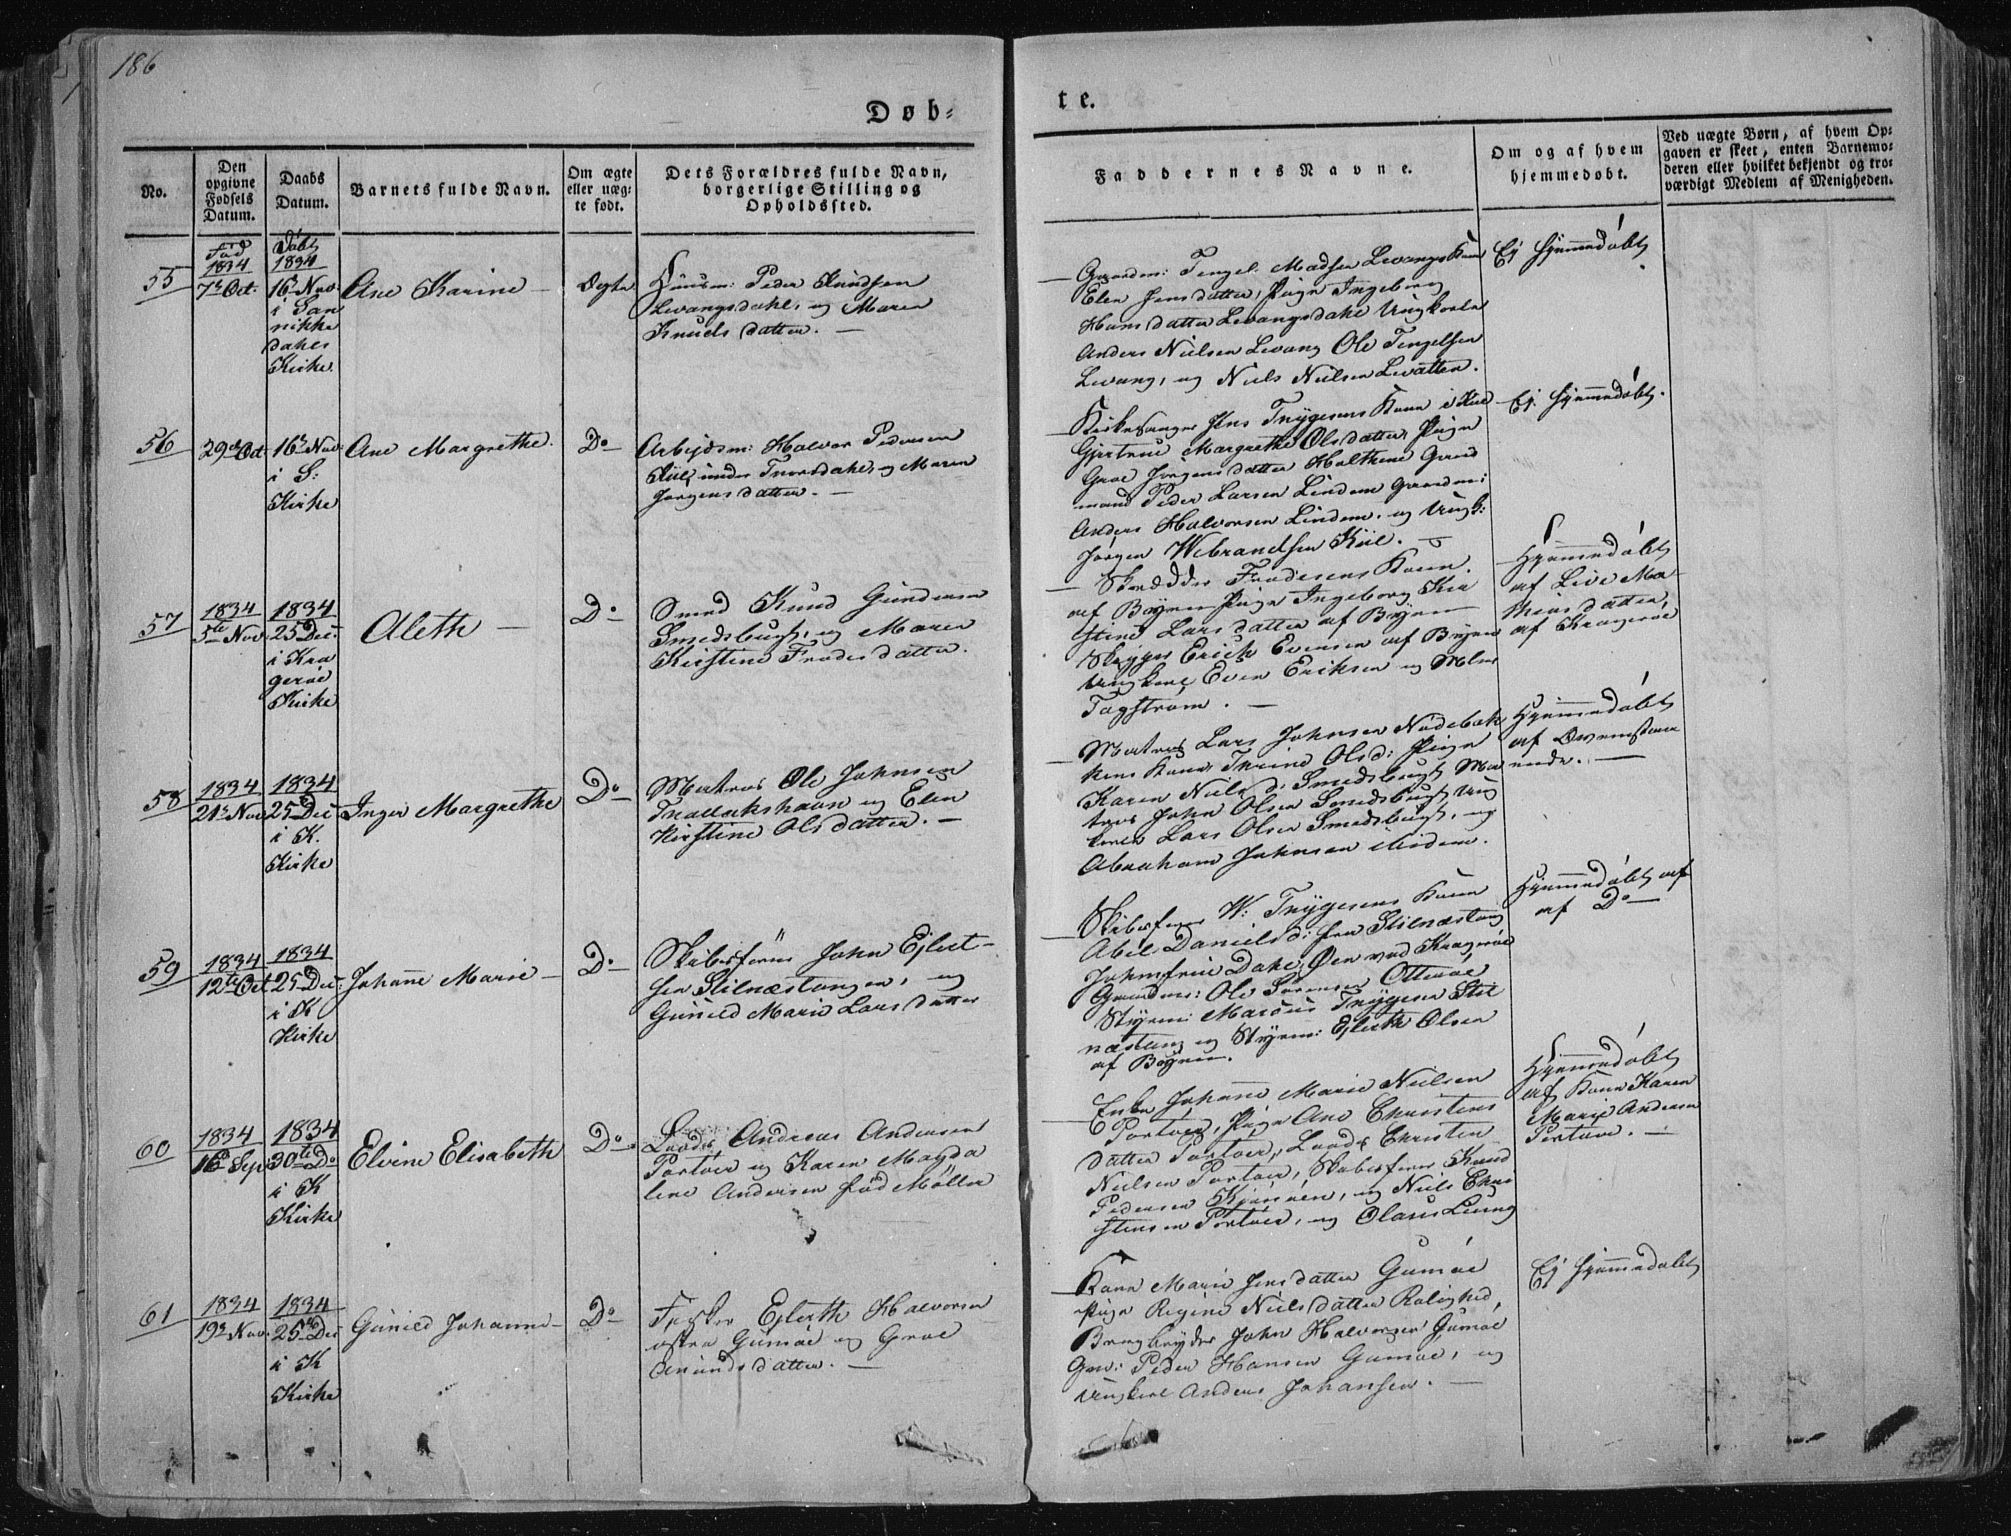 186
Døb-
te.
No.
Den opgivne Fødsels Datum.
Daabs Datum.
Barnets fulde Navn.
Om ægte eller uægte født.
Dets Forældres fulde Navn, borgerlige Stilling og Opholdssted.
Faddernes Navne.
Om og af hvem hjemmedøbt.
Ved uægte Børn, af hvem Opgaven er skeet, enten Barnemoderen eller hvilket bekjendt og troværdigt Medlem af Menigheden.
55
Fød
1834
7de Oct.
Døbt
1834
16de Nov.
i San
nikke
dahls
Kirke
Ane Karine
Ægte
Huusm: Peder Knudsen
Levangsdahl, og Maren
Knuds datter.
Gaardm: Tengel Madsen Levangs Kone
Elen Jensdatter, Pige Ingeborg
Hans datter Levangsdahl Ungkarle
Anders Nielsen Levang Ole Tengelsen
Levang, og Niels Nielsen
Ej hjemmedøbt
56
29de Oct.
16de Nov.
i S:
Kirke
Ane Margrethe.
Do
Arbejdsm: Halvor Pedersen
Kiil under og Maren
Jørgens datter.
Kirkesanger Jens Trygesens Kone i Kiil
Gjertrue Margrethe Olsdatter, Pige
Groe Jørgensdatter Gaard
mand Peder Larsen Lindem Gaardm:
Anders Halvorsen Lindem, og Ungk:
Jørgen Webrandsen Kiil.
Ej hjemmedøbt.
57
1834
5te Nov.
1834
25de Dec.
i Kra
gerøe
Kirke
Aleth
Do
Smed Knud Gundersen
Smedsbugt, og Maren
Kirstine Frodes datter.
Skrædder Frodesens Kone
af Byen Pige Ingeborg Kri
stine Lars datter af Byen
Erich Evensen af Byen
Ungkarl Even Eriksen og
Hjemmedøbt
af Live Ma-
thias datter
af Kragerøe
58
1834
21de Nov
1834
25de Dec
i K.
Kirke
Inger Margrethe
Do
Matros Ole Johnsen
og Elen
Kirstine Ols datter.
Matros Lars Johnsen
kens Kone Olsd: Pige
Karen Niels d: Smedsbugt Ma
tros John Olsen Smedsbugt Ung
karl Lars Olsen Smedsbugt, og
Abraham Johnsen ibidem.
Hjemmedøbt
af
59
1834
12te Oct
1834
25de Dec.
i K
Kirke
Johanne Marie
Do
Skibsfører John Ejlert-
sen Stilnæstangen, og
Gunild Marie Lars datter
Skibsfører W: Trygesens Kone
Abel Daniels d: fra Stilnæstang
Jomfrue Dahl, Øen ved Kragerøe
Gaardm: Ole Sørensen Otterøe,
Styrm: Marius Trygesen Stil
næstang og Styrm: Ejlerth Olsen
af Byen.
Hjemmedøbt af
af Do
60
1834
16de Sep
1834
30te Do
i K
Kirke
Elvine Elisabeth
Do
Lods Andreas Andersen
Portøer og Karen Magda
lene Andersen fød Møller
Enke Johanne Marie Nielsen
Portøer, Pige Ane Christens
datter Portøer, Lods Christen
Nielsen Portøer, Skibsfører Knud
Pedersen og Niels Chri
stensen Portøer, og Olaus
Hjemmedøbt
af Kone Karen
Marie Andersen
Portøer.
61
1834
19de Nov.
1834
25de Dec
i K
Kirke
Gunild Johanne
Do
Fisker Ejlerth Halvorsen
østre Gumøe og Groe
Amunds datter.
Kone Marie Jens datter Gumøe
Pige Regine Niels datter Rolighed,
John Halvorsen Gumøe
Peder Hansen Gumøe, og
Ungkarl Anders Johansen.
Ej hjemmedøbt